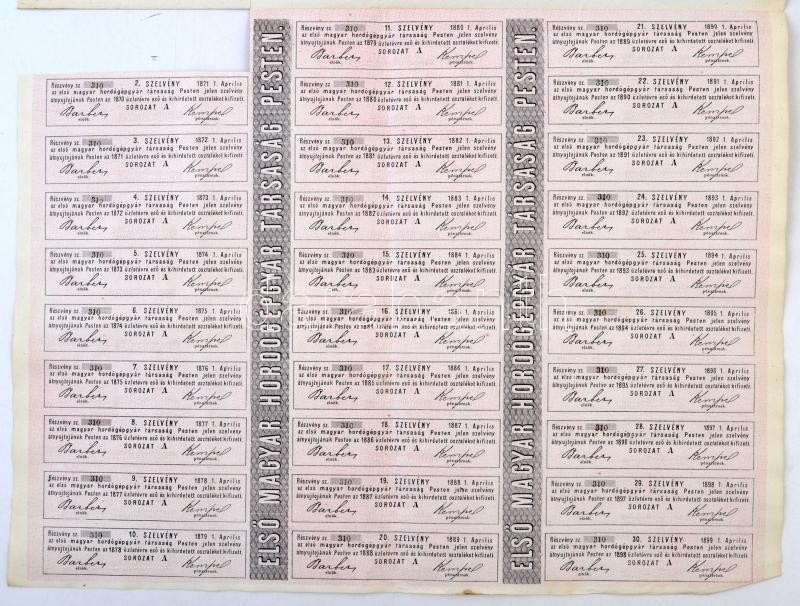 Részvény sz. 310 2. SZELVÉNY 1871 1. Április
az első magyar hordógépgyár társaság Pesten jelen szelvény
átnyujtójának Pesten az 1870 üzletévre eső és kihirdetett osztalékot kifizeti.
SOROZAT A
Barber Kempel
elnök. pénztárnok.
Részvény sz. 310 3. SZELVÉNY 1872 1. Április
az első magyar hordógépgyár társaság Pesten jelen szelvény
átnyujtójának Pesten az 1871 üzletévre eső és kihirdetett osztalékot kifizeti.
SOROZAT A
Barber Kempel
elnök. pénztárnok.
Részvény sz. 310 4. SZELVÉNY 1873 1. Április
az első magyar hordógépgyár társaság Pesten jelen szelvény
átnyujtójának Pesten az 1872 üzletévre eső és kihirdetett osztalékot kifizeti.
SOROZAT A
Barber Kempel
elnök. pénztárnok.
Részvény sz. 310 5. SZELVÉNY 1874 1. Április
az első magyar hordógépgyár társaság Pesten jelen szelvény
átnyujtójának Pesten az 1873 üzletévre eső és kihirdetett osztalékot kifizeti.
SOROZAT A
Barber Kempel
elnök. pénztárnok.
Részvény sz. 310 6. SZELVÉNY 1875 1. Április
az első magyar hordógépgyár társaság Pesten jelen szelvény
átnyujtójának Pesten az 1874 üzletévre eső és kihirdetett osztalékot kifizeti.
SOROZAT A
Barber Kempel
elnök. pénztárnok.
Részvény sz. 310 7. SZELVÉNY 1876 1. Április
az első magyar hordógépgyár társaság Pesten jelen szelvény
átnyujtójának Pesten az 1875 üzletévre eső és kihirdetett osztalékot kifizeti.
SOROZAT A
Barber Kempel
elnök. pénztárnok.
Részvény sz. 310 8. SZELVÉNY 1877 1. Április
az első magyar hordógépgyár társaság Pesten jelen szelvény
átnyujtójának Pesten az 1876 üzletévre eső és kihirdetett osztalékot kifizeti.
SOROZAT A
Barber Kempel
elnök. pénztárnok.
Részvény sz. 310 9. SZELVÉNY 1878 1. Április
az első magyar hordógépgyár társaság Pesten jelen szelvény
átnyujtójának Pesten az 1877 üzletévre eső és kihirdetett osztalékot kifizeti.
SOROZAT A
Barber Kempel
elnök. pénztárnok.
Részvény sz. 310 10. SZELVÉNY 1879 1. Április
az első magyar hordógépgyár társaság Pesten jelen szelvény
átnyujtójának Pesten az 1878 üzletévre eső és kihirdetett osztalékot kifizeti.
SOROZAT A
Barber Kempel
elnök. pénztárnok.
ELSŐ MAGYAR HORDÓGÉPGYÁR TÁRSASÁG PESTEN.
Részvény sz. 310 11. SZELVÉNY 1880 1. Április
az első magyar hordógépgyár társaság Pesten jelen szelvény
átnyujtójának Pesten az 1879 üzletévre eső és kihirdetett osztalékot kifizeti.
SOROZAT A
Barber Kempel
elnök. pénztárnok.
Részvény sz. 310 12. SZELVÉNY 1881 1. Április
az első magyar hordógépgyár társaság Pesten jelen szelvény
átnyujtójának Pesten az 1880 üzletévre eső és kihirdetett osztalékot kifizeti.
SOROZAT A
Barber Kempel
elnök. pénztárnok.
Részvény sz. 310 13. SZELVÉNY 1882 1. Április
az első magyar hordógépgyár társaság Pesten jelen szelvény
átnyujtójának Pesten az 1881 üzletévre eső és kihirdetett osztalékot kifizeti.
SOROZAT A
Barber Kempel
elnök. pénztárnok.
Részvény sz. 310 14. SZELVÉNY 1883 1. Április
az első magyar hordógépgyár társaság Pesten jelen szelvény
átnyujtójának Pesten az 1882 üzletévre eső és kihirdetett osztalékot kifizeti.
SOROZAT A
Barber Kempel
elnök. pénztárnok.
Részvény sz. 310 15. SZELVÉNY 1884 1. Április
az első magyar hordógépgyár társaság Pesten jelen szelvény
átnyujtójának Pesten az 1883 üzletévre eső és kihirdetett osztalékot kifizeti.
SOROZAT A
Barber Kempel
elnök. pénztárnok.
Részvény sz. 310 16. SZELVÉNY 1. Április
az első magyar hordógépgyár társaság Pesten jelen szelvény
átnyujtójának Pesten az 1884 üzletévre eső és kihirdetett osztalékot kifizeti.
SOROZAT A
Barber Kempel
elnök. pénztárnok.
Részvény sz. 310 17. SZELVÉNY 1886 1. Április
az első magyar hordógépgyár társaság Pesten jelen szelvény
átnyujtójának Pesten az 1885 üzletévre eső és kihirdetett osztalékot kifizeti.
SOROZAT A
Barber Kempel
elnök. pénztárnok.
Részvény sz. 310 18. SZELVÉNY 1887 1. Április
az első magyar hordógépgyár társaság Pesten jelen szelvény
átnyujtójának Pesten az 1886 üzletévre eső és kihirdetett osztalékot kifizeti.
SOROZAT A
Barber Kempel
elnök. pénztárnok.
Részvény sz. 310 19. SZELVÉNY 1888 1. Április
az első magyar hordógépgyár társaság Pesten jelen szelvény
átnyujtójának Pesten az 1887 üzletévre eső és kihirdetett osztalékot kifizeti.
SOROZAT A
Barber Kempel
elnök. pénztárnok.
Részvény sz. 310 20. SZELVÉNY 1889 1. Április
az első magyar hordógépgyár társaság Pesten jelen szelvény
átnyujtójának Pesten az 1888 üzletévre eső és kihirdetett osztalékot kifizeti.
SOROZAT A
Barber Kempel
elnök. pénztárnok.
ELSŐ MAGYAR HORDÓGÉPGYÁR TÁRSASÁG PESTEN.
Részvény sz. 310 21. SZELVÉNY 1890 1. Április
az első magyar hordógépgyár társaság Pesten jelen szelvény
átnyujtójának Pesten az 1889 üzletévre eső és kihirdetett osztalékot kifizeti.
SOROZAT A
Barber Kempel
elnök. pénztárnok.
Részvény sz. 310 22. SZELVÉNY 1891 1. Április
az első magyar hordógépgyár társaság Pesten jelen szelvény
átnyujtójának Pesten az 1890 üzletévre eső és kihirdetett osztalékot kifizeti.
SOROZAT A
Barber Kempel
elnök. pénztárnok.
Részvény sz. 310 23. SZELVÉNY 1892 1. Április
az első magyar hordógépgyár társaság Pesten jelen szelvény
átnyujtójának Pesten az 1891 üzletévre eső és kihirdetett osztalékot kifizeti.
SOROZAT A
Barber Kempel
elnök. pénztárnok.
Részvény sz. 310 24. SZELVÉNY 1893 1. Április
az első magyar hordógépgyár társaság Pesten jelen szelvény
átnyujtójának Pesten az 1892 üzletévre eső és kihirdetett osztalékot kifizeti.
SOROZAT A
Barber Kempel
elnök. pénztárnok.
Részvény sz. 310 25. SZELVÉNY 1894 1. Április
az első magyar hordógépgyár társaság Pesten jelen szelvény
átnyujtójának Pesten az 1893 üzletévre eső és kihirdetett osztalékot kifizeti.
SOROZAT A
Barber Kempel
elnök. pénztárnok.
Részvény sz. 310 26. SZELVÉNY 1895 1. Április
az első magyar hordógépgyár társaság Pesten jelen szelvény
átnyujtójának Pesten az 1894 üzletévre eső és kihirdetett osztalékot kifizeti.
SOROZAT A
Barber Kempel
elnök. pénztárnok.
Részvény sz. 310 27. SZELVÉNY 1896 1. Április
az első magyar hordógépgyár társaság Pesten jelen szelvény
átnyujtójának Pesten az 1895 üzletévre eső és kihirdetett osztalékot kifizeti.
SOROZAT A
Barber Kempel
elnök. pénztárnok.
Részvény sz. 310 28. SZELVÉNY 1897 1. Április
az első magyar hordógépgyár társaság Pesten jelen szelvény
átnyujtójának Pesten az 1896 üzletévre eső és kihirdetett osztalékot kifizeti.
SOROZAT A
Barber Kempel
elnök. pénztárnok.
Részvény sz. 310 29. SZELVÉNY 1898 1. Április
az első magyar hordógépgyár társaság Pesten jelen szelvény
átnyujtójának Pesten az 1897 üzletévre eső és kihirdetett osztalékot kifizeti.
SOROZAT A
Barber Kempel
elnök. pénztárnok.
Részvény sz. 310 30. SZELVÉNY 1899 1. Április
az első magyar hordógépgyár társaság Pesten jelen szelvény
átnyujtójának Pesten az 1898 üzletévre eső és kihirdetett osztalékot kifizeti.
SOROZAT A
Barber Kempel
elnök. pénztárnok.